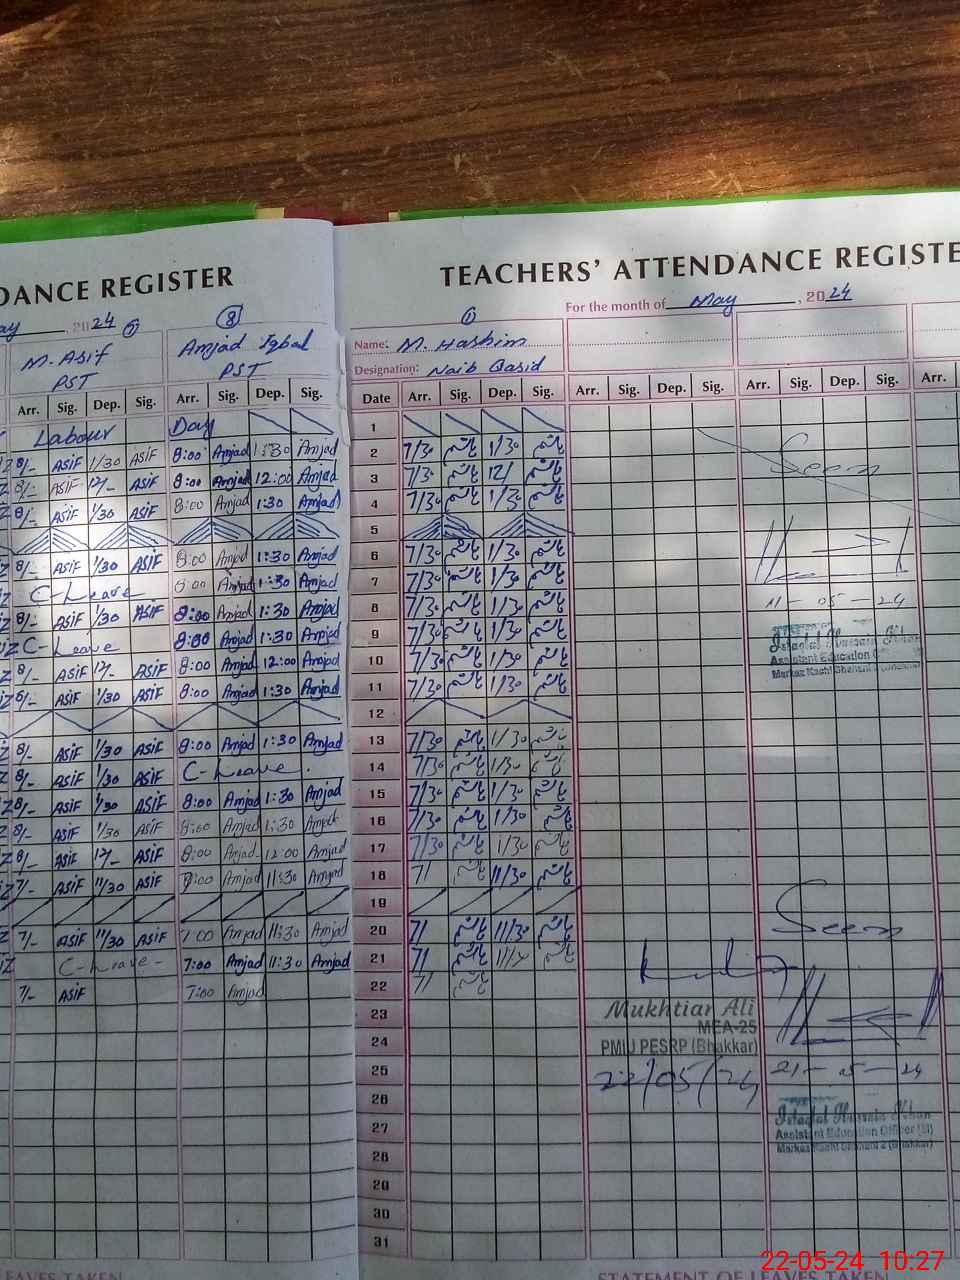 DANCE REGISTER
ay, 2024 7 8
M. Asif Amjad Iqbal
PST PST
Arr. Sig. Dep. Sig. Arr. Sig. Dep. Sig.
Labour Day
8/- ASIF 1/30 ASIF 8:00 Amjad 1:30 Amjad
8/- ASIF 12/- ASIF 8:00 Amjad 12:00 Amjad
8/- ASIF 1/30 ASIF 8:00 Amjad 1:30 Amjad
8/- ASIF 1/30 ASIF 8:00 Amjad 1:30 Amjad
C-Leave 8:00 Amjad 1:30 Amjad
8/- ASIF 1/30 ASIF 8:00 Amjad 1:30 Amjad
C-Leave 8:00 Amjad 1:30 Amjad
8/- ASIF 12/- ASIF 8:00 Amjad 12:00 Amjad
8/- ASIF 1/30 ASIF 8:00 Amjad 1:30 Amjad
8/- ASIF 1/30 ASIF 8:00 Amjad 1:30 Amjad
8/- ASIF 1/30 ASIF C-Leave.
8/- ASIF 1/30 ASIF 8:00 Amjad 1:30 Amjad
8/- ASIF 1/30 ASIF 8:00 Amjad 1:30 Amjad
8/- ASIF 12/- ASIF 8:00 Amjad 12:00 Amjad
7/- ASIF 11/30 ASIF 7:00 Amjad 11:30 Amjad
7/- ASIF 11/30 ASIF 7:00 Amjad 11:30 Amjad
C-Leave- 7:00 Amjad 11:30 Amjad
7/- ASIF 7:00 Amjad
LEAVES TAKEN
TEACHERS' ATTENDANCE REGISTE
For the month of May, 2024
Name: M. Hashim
Designation: Naib Qasid
Date Arr. Sig. Dep. Sig. Arr. Sig. Dep. Sig. Arr. Sig. Dep. Sig. Arr.
1
2 7/30 ہاشم 1/30 ہاشم
3 7/30 ہاشم 12/ ہاشم
4 7/30 ہاشم 1/30 ہاشم
5
6 7/30 ہاشم 1/30 ہاشم
7 7/30 ہاشم 1/30 ہاشم
8 7/30 ہاشم 1/30 ہاشم
9 7/30 ہاشم 1/30 ہاشم
10 7/30 ہاشم 1/30 ہاشم
11 7/30 ہاشم 1/30 ہاشم
12
13 7/30 ہاشم 1/30 ہاشم
14 7/30 ہاشم 1/30 ہاشم
15 7/30 ہاشم 1/30 ہاشم
16 7/30 ہاشم 1/30 ہاشم
17 7/30 ہاشم 1/30 ہاشم
18 7/ ہاشم 11/30 ہاشم
19
20 7/ ہاشم 11/30 ہاشم
21 7/ ہاشم ہاشم
22 7/ ہاشم
23
24
25
26
27
28
29
30
31
Seen
11-05-24
Assistant Education
Seen
Mukhtiar Ali
MEA-25
PMIU PESRP (Bhakkar)
22/05/24
21-05-24
Assistant Education Officer
STATEMENT OF LEAVES TAKEN
22-05-24 10:27